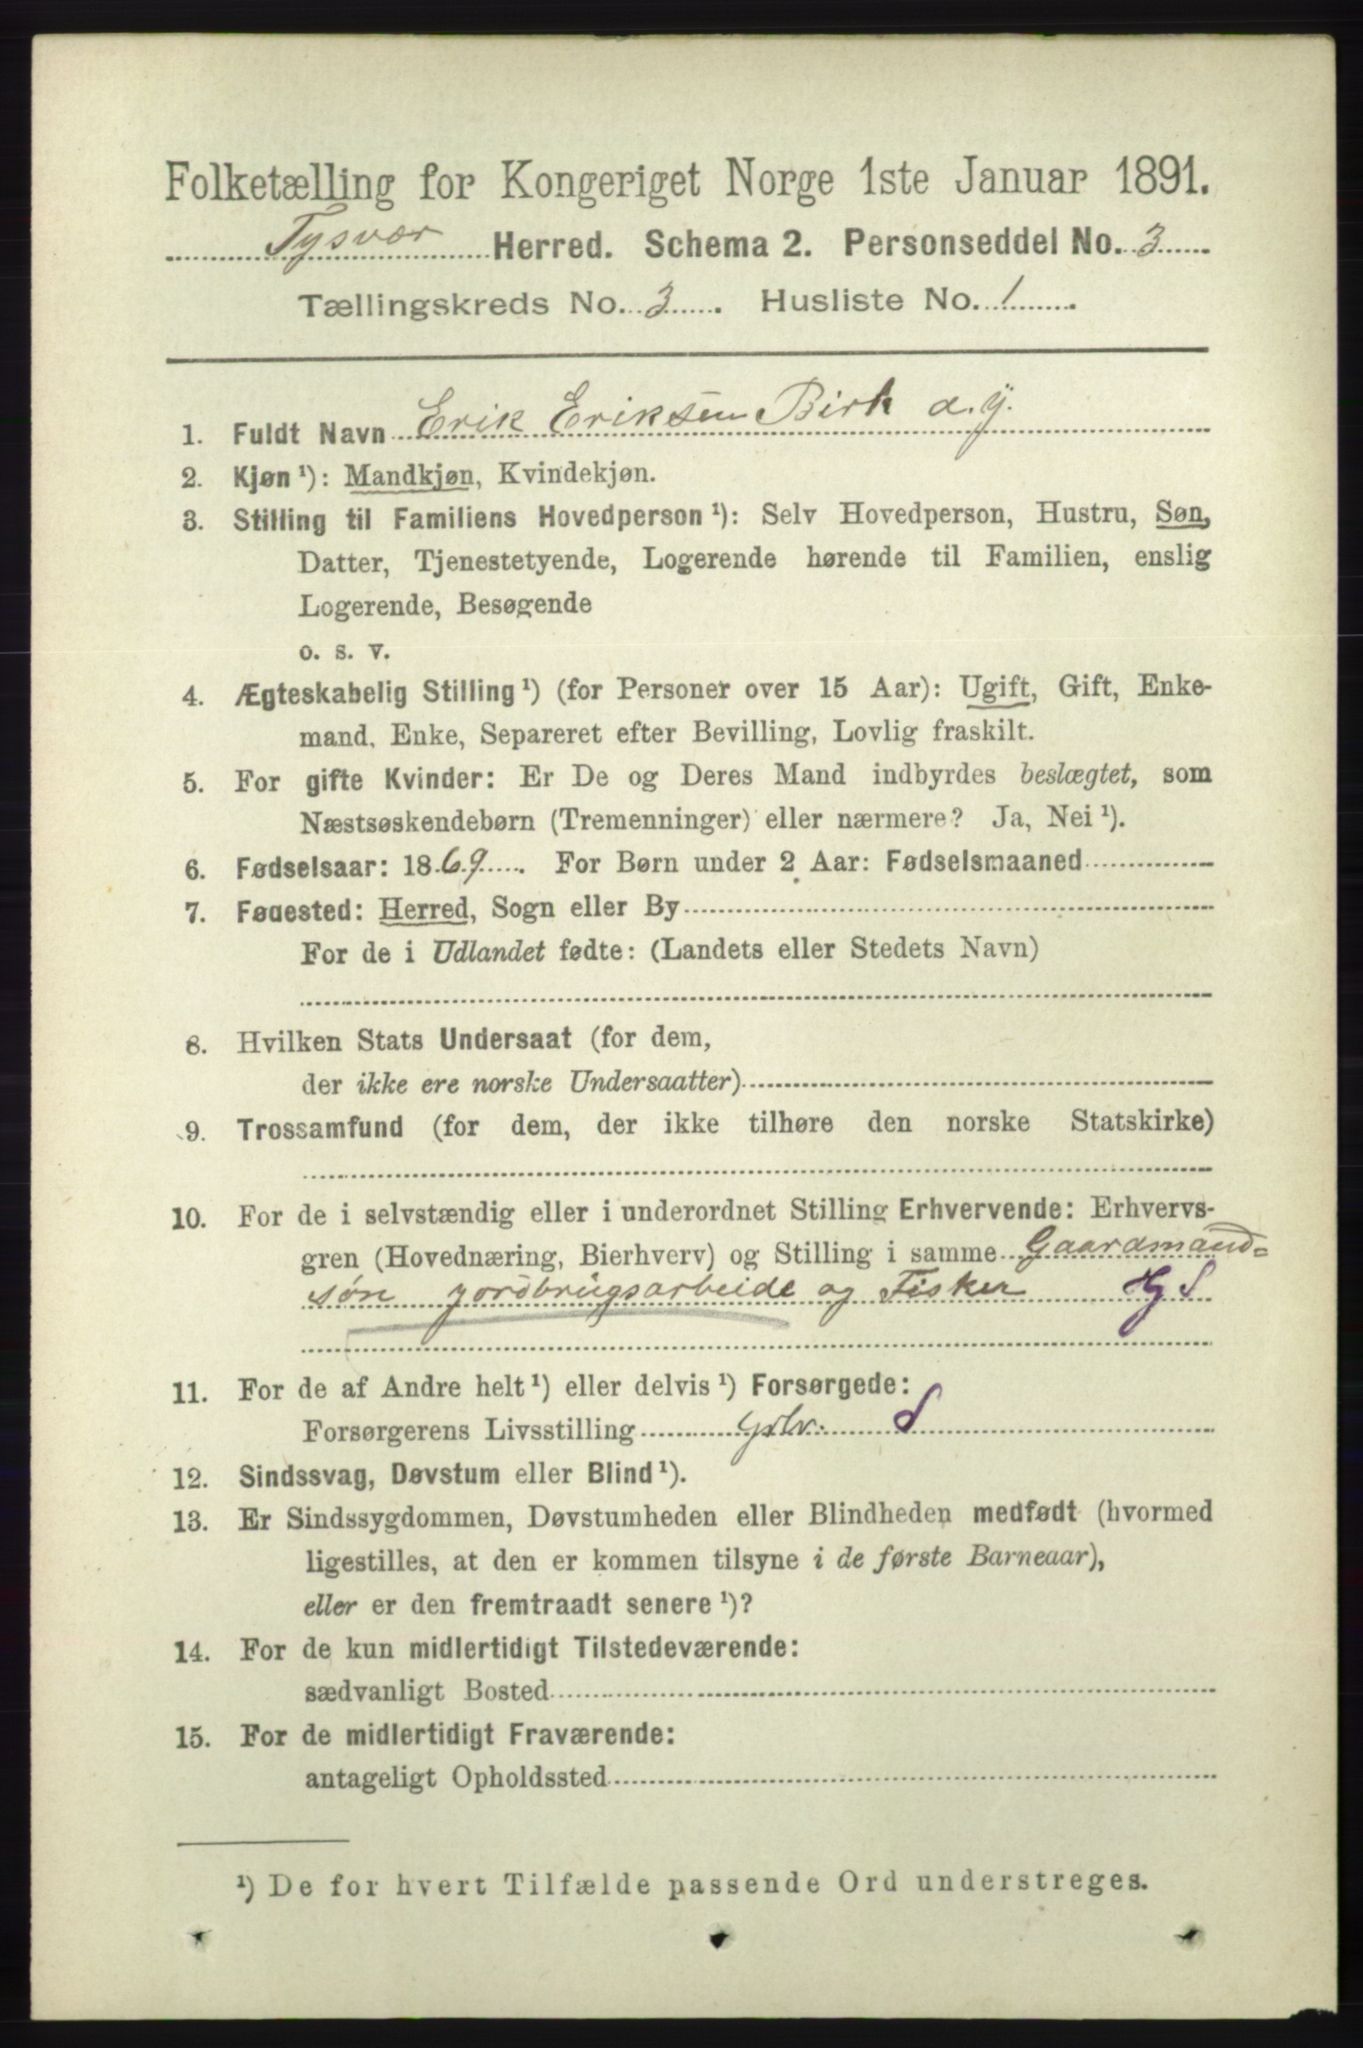 Folketælling for Kongeriget Norge 1ste Januar 1891.
Tysvær Herred. Schema 2. Personseddel No. 3
Tællingskreds No. 3. Husliste No. 1.
1. Fuldt Navn Erik Eriksen Birk d. y.
2. Kjøn ¹): Mandkjøn, Kvindekjøn.
3. Stilling til Familiens Hovedperson ¹): Selv Hovedperson, Hustru, Søn,
Datter, Tjenestetyende, Logerende hørende til Familien, enslig
Logerende, Besøgende
o. s. v.
4. Ægteskabelig Stilling ¹) (for Personer over 15 Aar): Ugift, Gift, Enke-
mand, Enke, Separeret efter Bevilling, Lovlig fraskilt.
5. For gifte Kvinder: Er De og Deres Mand indbyrdes beslægtet, som
Næstsøskendebørn (Tremenninger) eller nærmere? Ja, Nei ¹).
6. Fødselsaar: 1869. For Børn under 2 Aar: Fødselsmaaned
7. Fødested: Herred, Sogn eller By
For de i Udlandet fødte: (Landets eller Stedets Navn)
8. Hvilken Stats Undersaat (for dem,
der ikke ere norske Undersaatter)
9. Trossamfund (for dem, der ikke tilhøre den norske Statskirke)
10. For de i selvstændig eller i underordnet Stilling Erhvervende: Erhvervs-
gren (Hovednæring, Bierhverv) og Stilling i samme Gaardmand=
søn jordbrugsarbeide og Fisker Hg S
11. For de af Andre helt ¹) eller delvis ¹) Forsørgede:
Forsørgerens Livsstilling S
12. Sindssvag, Døvstum eller Blind ¹).
13. Er Sindssygdommen, Døvstumheden eller Blindheden medfødt (hvormed
ligestilles, at den er kommen tilsyne i de første Barneaar),
eller er den fremtraadt senere ¹)?
14. For de kun midlertidigt Tilstedeværende:
sædvanligt Bosted
15. For de midlertidigt Fraværende:
antageligt Opholdssted
¹) De for hvert Tilfælde passende Ord understreges.